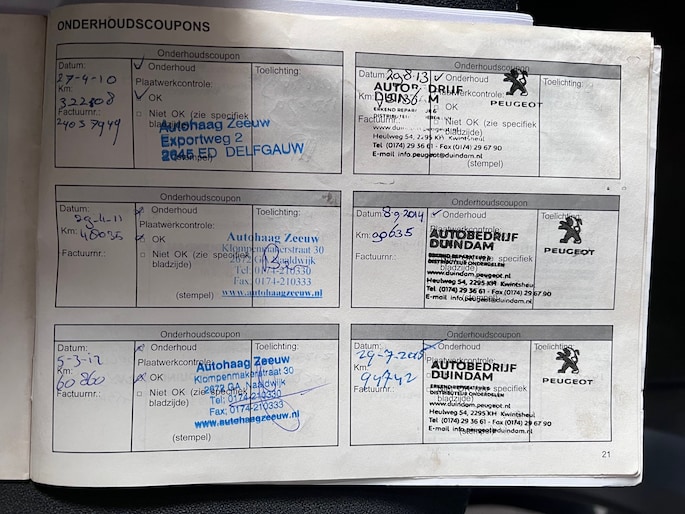 ONDERHOUDSCOUPONS
Onderhoudscoupon
Datum:
27-4-10
Km:
Factuurnr.:
Onderhoud
Plaatwerkcontrole:
OK
Niet OK (zie specifiek
bladzijde)
(stempel)
Toelichting:
Autohaag Zeeuw
Exportweg 2
2645 ED DELFGAUW
Onderhoudscoupon
Datum:
29.8.13
Km:
Factuurnr.:
Onderhoud
Plaatwerkcontrole:
OK
Niet OK (zie specifiek
bladzijde)
Toelichting:
DUINDAM
Heulweg 54, 2295 KH Kwintsheul
Tel (0174) 29 36 61 - Fax (0174) 29 67 90
E-mail info.peugeot@duindam.nl
PEUGEOT
Onderhoudscoupon
Datum:
29-4-11
Km:
48035
Factuurnr.:
Onderhoud
Plaatwerkcontrole:
OK
Niet OK (zie specifiek
bladzijde)
(stempel)
Toelichting:
Autohaag Zeeuw
Klompenmakerstraat 30
2672 GA Naaldwijk
Tel: 0174-210330
Fax: 0174-210333
www.autohaagzeeuw.nl
Onderhoudscoupon
Datum:
8-9-2014
Km:
90635
Factuurnr.:
Onderhoud
Toelichting:
AUTOBEDRIJF
DUINDAM
ERKEND REPARATEUR &
DISTRIBUTEUR ONDERDELEN
www.duindam.peugeot.nl
Heulweg 54, 2295 KH Kwintsheul
Tel. (0174) 29 36 61 - Fax (0174) 29 67 90
E-mail info.peugeot@duindam.nl
PEUGEOT
Onderhoudscoupon
Datum:
5-3-12
Km:
60860
Factuurnr.:
Onderhoud
Plaatwerkcontrole:
OK
Niet OK (zie specifiek
bladzijde)
(stempel)
Toelichting:
Autohaag Zeeuw
Klompenmakerstraat 30
2672 GA Naaldwijk
Tel: 0174-210330
Fax: 0174-210333
www.autohaagzeeuw.nl
Onderhoudscoupon
Datum:
Km:
94742
Factuurnr.:
Onderhoud
Toelichting:
AUTOBEDRIJF
DUINDAM
ERKEND REPARATEUR &
DISTRIBUTEUR ONDERDELEN
www.duindam.peugeot.nl
Heulweg 54, 2295 KH Kwintsheul
Tel. (0174) 29 36 61 - Fax (0174) 29 67 90
E-mail info.peugeot@duindam.nl
PEUGEOT
21